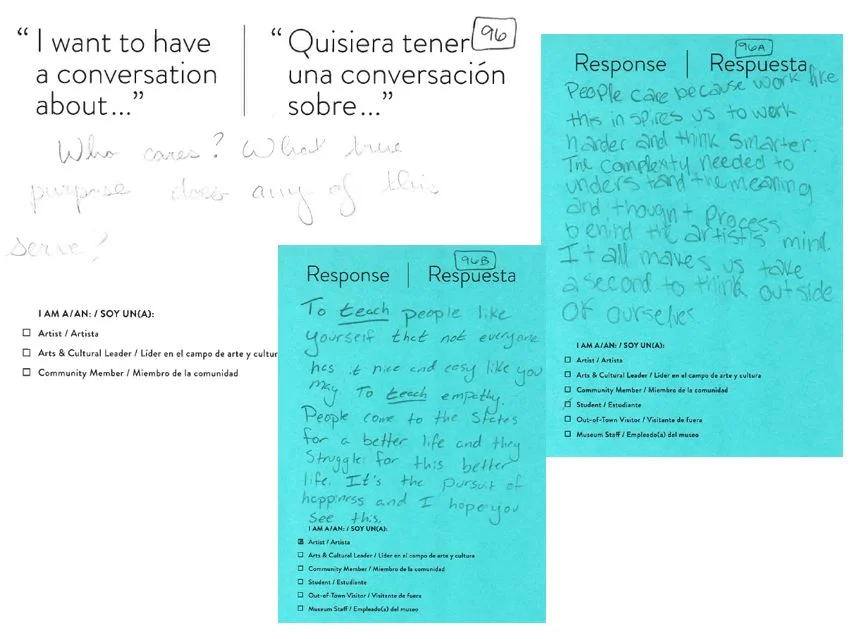 “ I want to have
a conversation
about...”
“ Quisiera tener
una conversación
sobre...”
96
Who cares? What true
purpose does any of this
serve?
I AM A/AN: / SOY UN(A):
Artist / Artista
Arts & Cultural Leader / Líder en el campo de arte y cultur
Community Member / Miembro de la comunidad
96A
Response | Respuesta
People care because work like
this inspires us to work
harder and think smarter.
The complexity needed to
understand the meaning
and thought process
behind the artist's mind.
It all makes us take
a second to think outside
of ourselves
I AM A/AN: / SOY UN(A):
Artist / Artista
Arts & Cultural Leader / Líder en el campo de arte y cultura
Community Member / Miembro de la comunidad
Student / Estudiante
Out-of-Town Visitor / Visitante de fuera
Museum Staff / Empleado(a) del museo
96B
Response | Respuesta
To teach people like
yourself that not everyone
has it nice and easy like you
may. To teach empathy.
People come to the States
for a better life and they
struggle for this better
life. It's the pursuit of
happiness and I hope you
see this.
I AM A/AN: / SOY UN(A):
Artist / Artista
Arts & Cultural Leader / Líder en el campo de arte y cultura
Community Member / Miembro de la comunidad
Student / Estudiante
Out-of-Town Visitor / Visitante de fuera
Museum Staff / Empleado(a) del museo